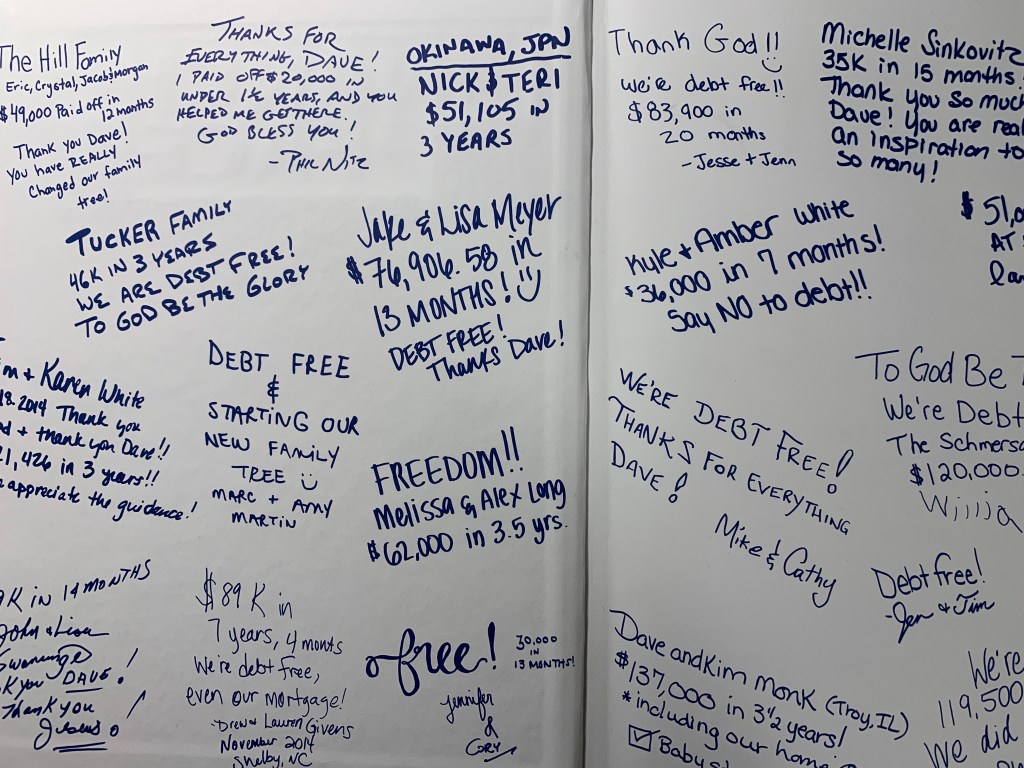 The Hill Family
Eric, Crystal, Jacob & Morgan
$49,000 Paid off in
12 months
Thank you Dave!
You have REALLY!
Changed our family
tree!
THANKS FOR
EVERYTHING, DAVE!
I PAID OFF $20,000 IN
UNDER 1½ YEARS, AND YOU
HELPED ME GET THERE.
GOD BLESS YOU!
-PHIL NITZ
OKINAWA, JPN
NICK & TERI
$51,105 IN
3 YEARS
TUCKER FAMILY
46K IN 3 YEARS
WE ARE DEBT FREE!
TO GOD BE THE GLORY
Jake & Lisa Meyer
$76,906.58 in
13 MONTHS!
DEBT FREE!
Thanks Dave!
+ Karen White
2014 Thank you
+ thank you Dave!!
in 3 years!!
appreciate the guidance!
DEBT FREE
&
STARTING OUR
NEW FAMILY
TREE
MARC + AMY
MARTIN
FREEDOM!!
Melissa & Alex Long
$62,000 in 3.5 yrs.
K IN 14 MONTHS
John & Lisa
you DAVE!
Thank you
Jesus!
$89 K in
7 years, 4 monts
We're debt free,
even our mortgage!
-Drew & Lauren Givens
November 2014
Shelby, NC
free!
30,000
IN
13 MONTHS!
Jennifer
&
CORY
Thank God!!
we're debt free!!
$83,900 in
20 months
-Jesse + Jenn
Michelle Sinkovitz
35K in 15 months!
Thank you so much
Dave! You are
an inspiration to
so many!
Kyle + Amber White
$36,000 in 7 months!
Say NO to debt!!
$51,0
AT
WE'RE DEBT FREE!
THANKS FOR EVERYTHING
DAVE!
Mike & Cathy
To God Be
We're Debt
The
$120,000
Debt free!
-Jen & Tim
Dave and Kim Monk (Troy, IL)
$137,000 in 3½ years!
*including our home
Baby
We're
119,500
We did